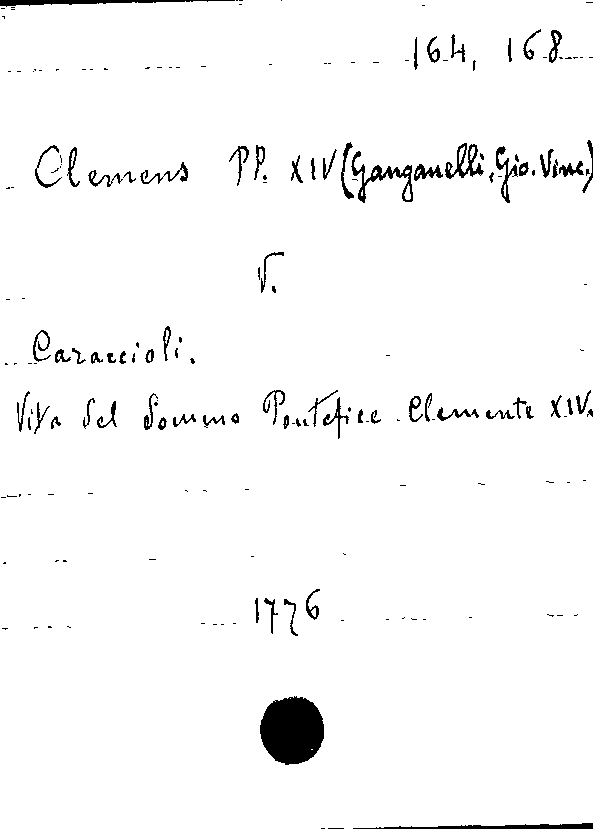 164, 168
Clemens PP. XIV (Ganganelli, Gio. Vinc.)
V.
Caraccioli.
Vita del Sommo Pontefice Clemente XIV.
1776